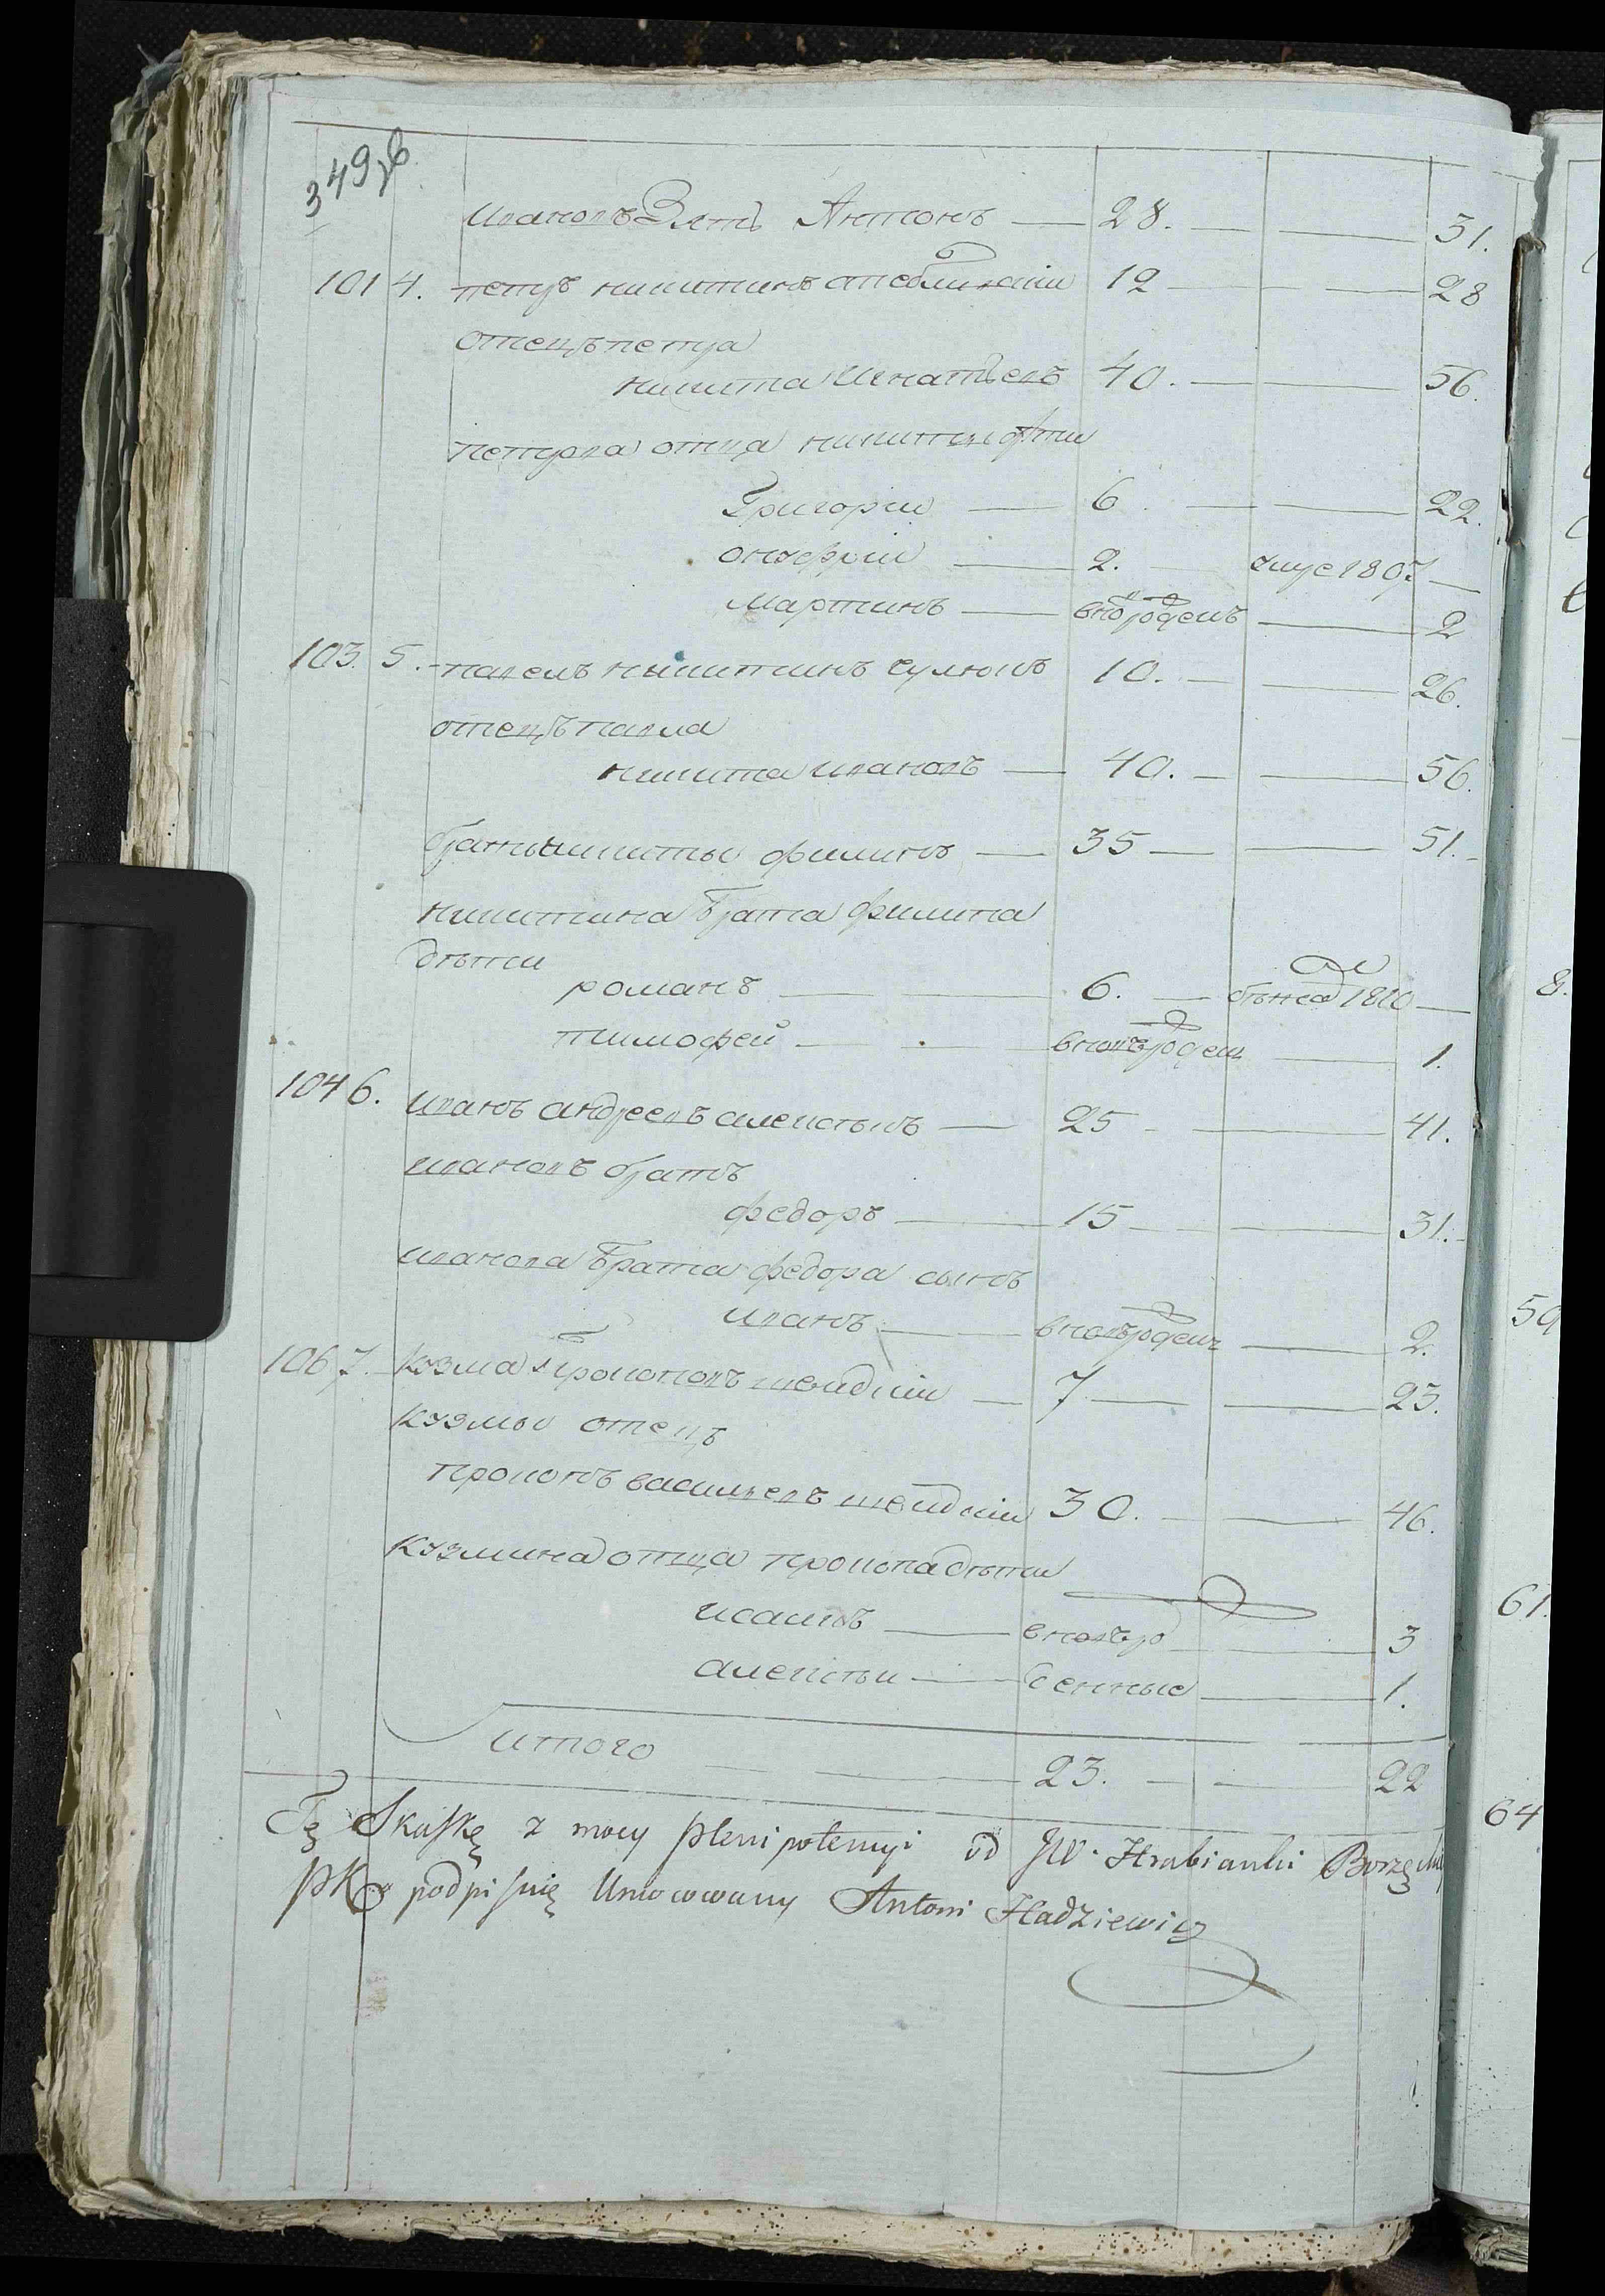 349 об.
Ивановъ Зять Антонъ — 28. — — 31.
101 4. петръ никитинъ 12 — — 28
отецъ петра
никита Игнатьевъ 40. — — 56.
петрова отца никиты дѣти
Григорiи — 6. — — 22.
онуфрiи — 2. 1807 —
мартинъ — вновьрожденъ — 2
103. 5. павелъ никитинъ 10. — — 26.
отецъ павла
никита ивановъ — 40. — — 56.
братъ никиты филипъ — 35 — — 51.
никитина брата филипа
дѣти
романъ — — 6. — 1810 —
тимофей — — вновьрожден — 1.
104 6. Иванъ андреевъ — 25 — 41.
ивановъ братъ
федоръ — 15 — — 31.
иванова брата федора сынъ
иванъ — вновьрожден — 2.
106 7. кузма прокоповъ — 7 — — 23.
кузмы отецъ
прокопъ васильевъ 30. — — 46.
кузмина отца прокопа дѣти
исакъ — вновьро — 3
алексѣи — жденные — 1.
итого — — 23. — — 22
Tę Skaskę z mocy plenipotencyi od JW. Hrabianki
PK podpisuię Umocowany Antoni Hadziewicz
8.
59
61.
64